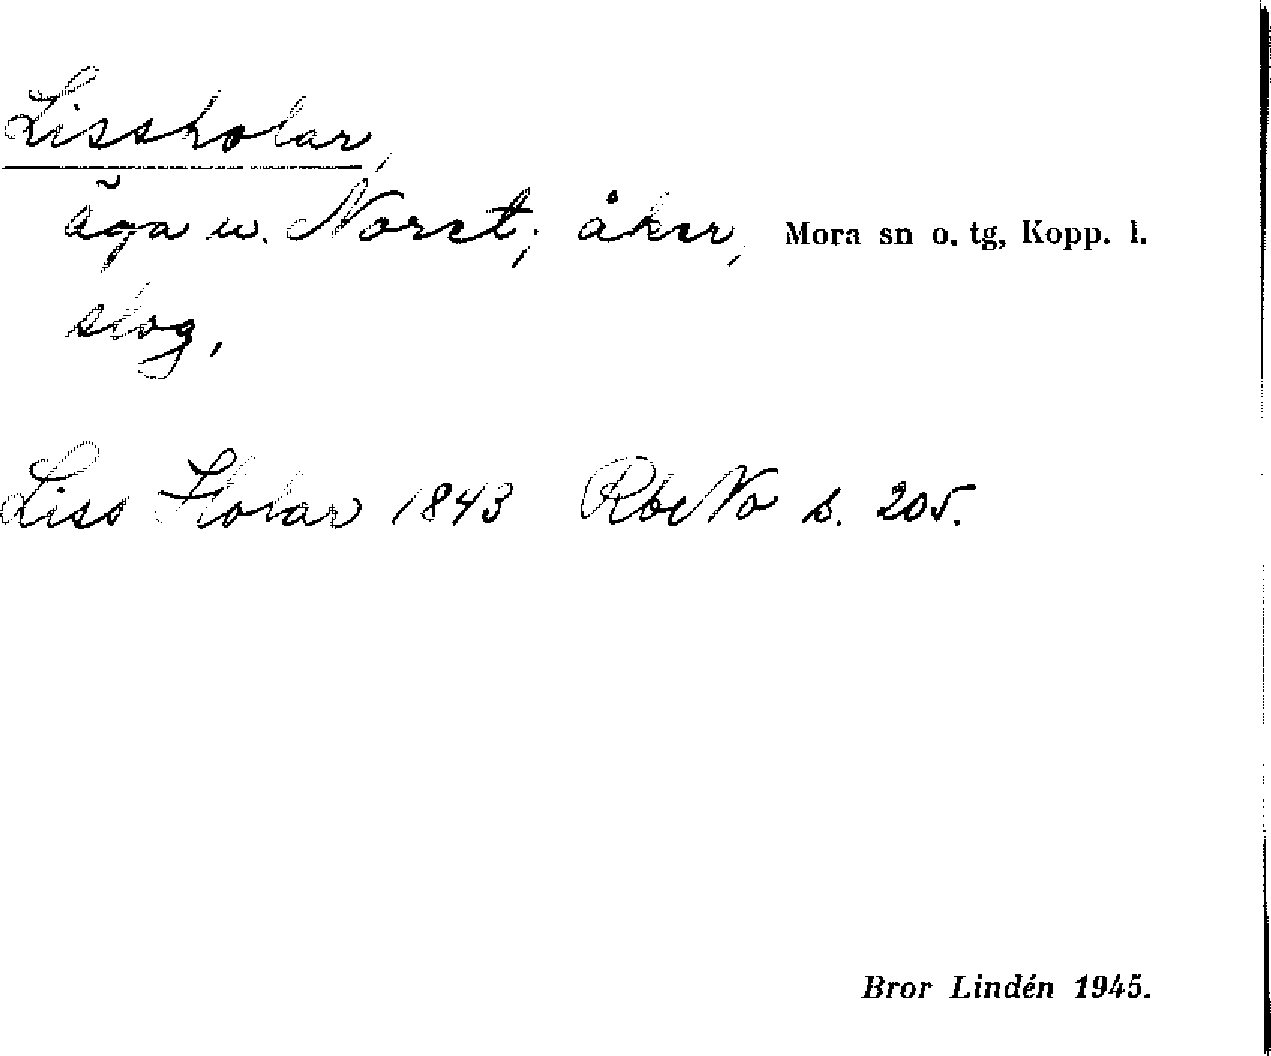 Lissholar,
äga u. Noret; åker, Mora sn o. tg, Kopp. l.
slog,
Liss Holar 1843 RbeNo s. 205.
Bror Lindén 1945.